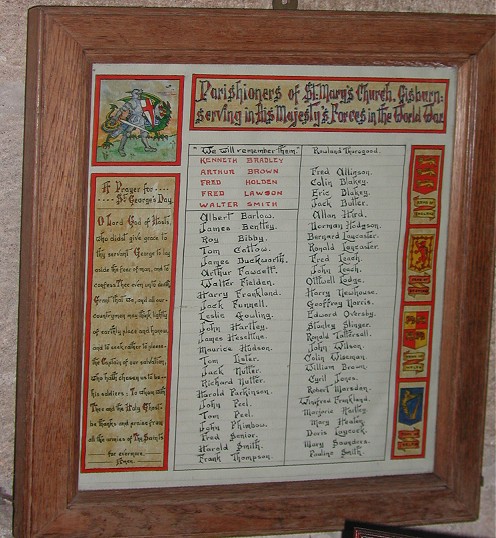 Parishioners of St. Mary's Church, Gisburn:
serving in His Majesty's Forces in the World War
A Prayer for
St. George's Day.
O Lord God of Hosts,
who didst give grace to
thy servant George to lay
aside the fear of man, and to
confess Thee even unto death
Grant that we, and all our
countrymen may think lightly
of earthly place and honour
and to seek rather to please
the Captain of our salvation,
who hath chosen us to be
his soldiers; To whom with
Thee and the Holy Ghost
be thanks and praise from
all the armies of The Saints
for evermore
Amen
"We will remember them."
KENNETH BRADLEY
ARTHUR BROWN
FRED HOLDEN
FRED LAWSON
WALTER SMITH
Albert Barlow.
James Bentley.
Roy Bibby.
Tom Catlow.
James Duckworth.
Arthur Fawcett.
Walter Fielden.
Harry Frankland.
Jack Funnell.
Leslie Gowling.
John Hartley.
James Heseltine.
Maurice Hudson.
Tom Lister.
Jack Nutter.
Richard Nutter.
Harold Parkinson.
John Peel.
Tom Peel.
John Phimbow.
Fred Senior.
Harold Smith.
Frank Thompson.
Rowland Thorogood.
Fred Allinson.
Colin Blakey.
Eric Blakey.
Jack Butler.
Allan Hird.
Norman Hodgson.
Bernard Lancaster.
Ronald Lancaster.
Fred Leach.
John Leach.
Ottiwell Lodge.
Harry Newhouse.
Geoffrey Norris.
Edward Oversby.
Stanley Slinger.
Ronald Tattersall.
John Wilson.
Colin Wiseman.
William Brown.
Cyril Jones.
Robert Marsden.
Winifred Frankland.
Marjorie Hartley.
Mary Heaton.
Doris Laycock.
Mary Saunders.
Pauline Smith.